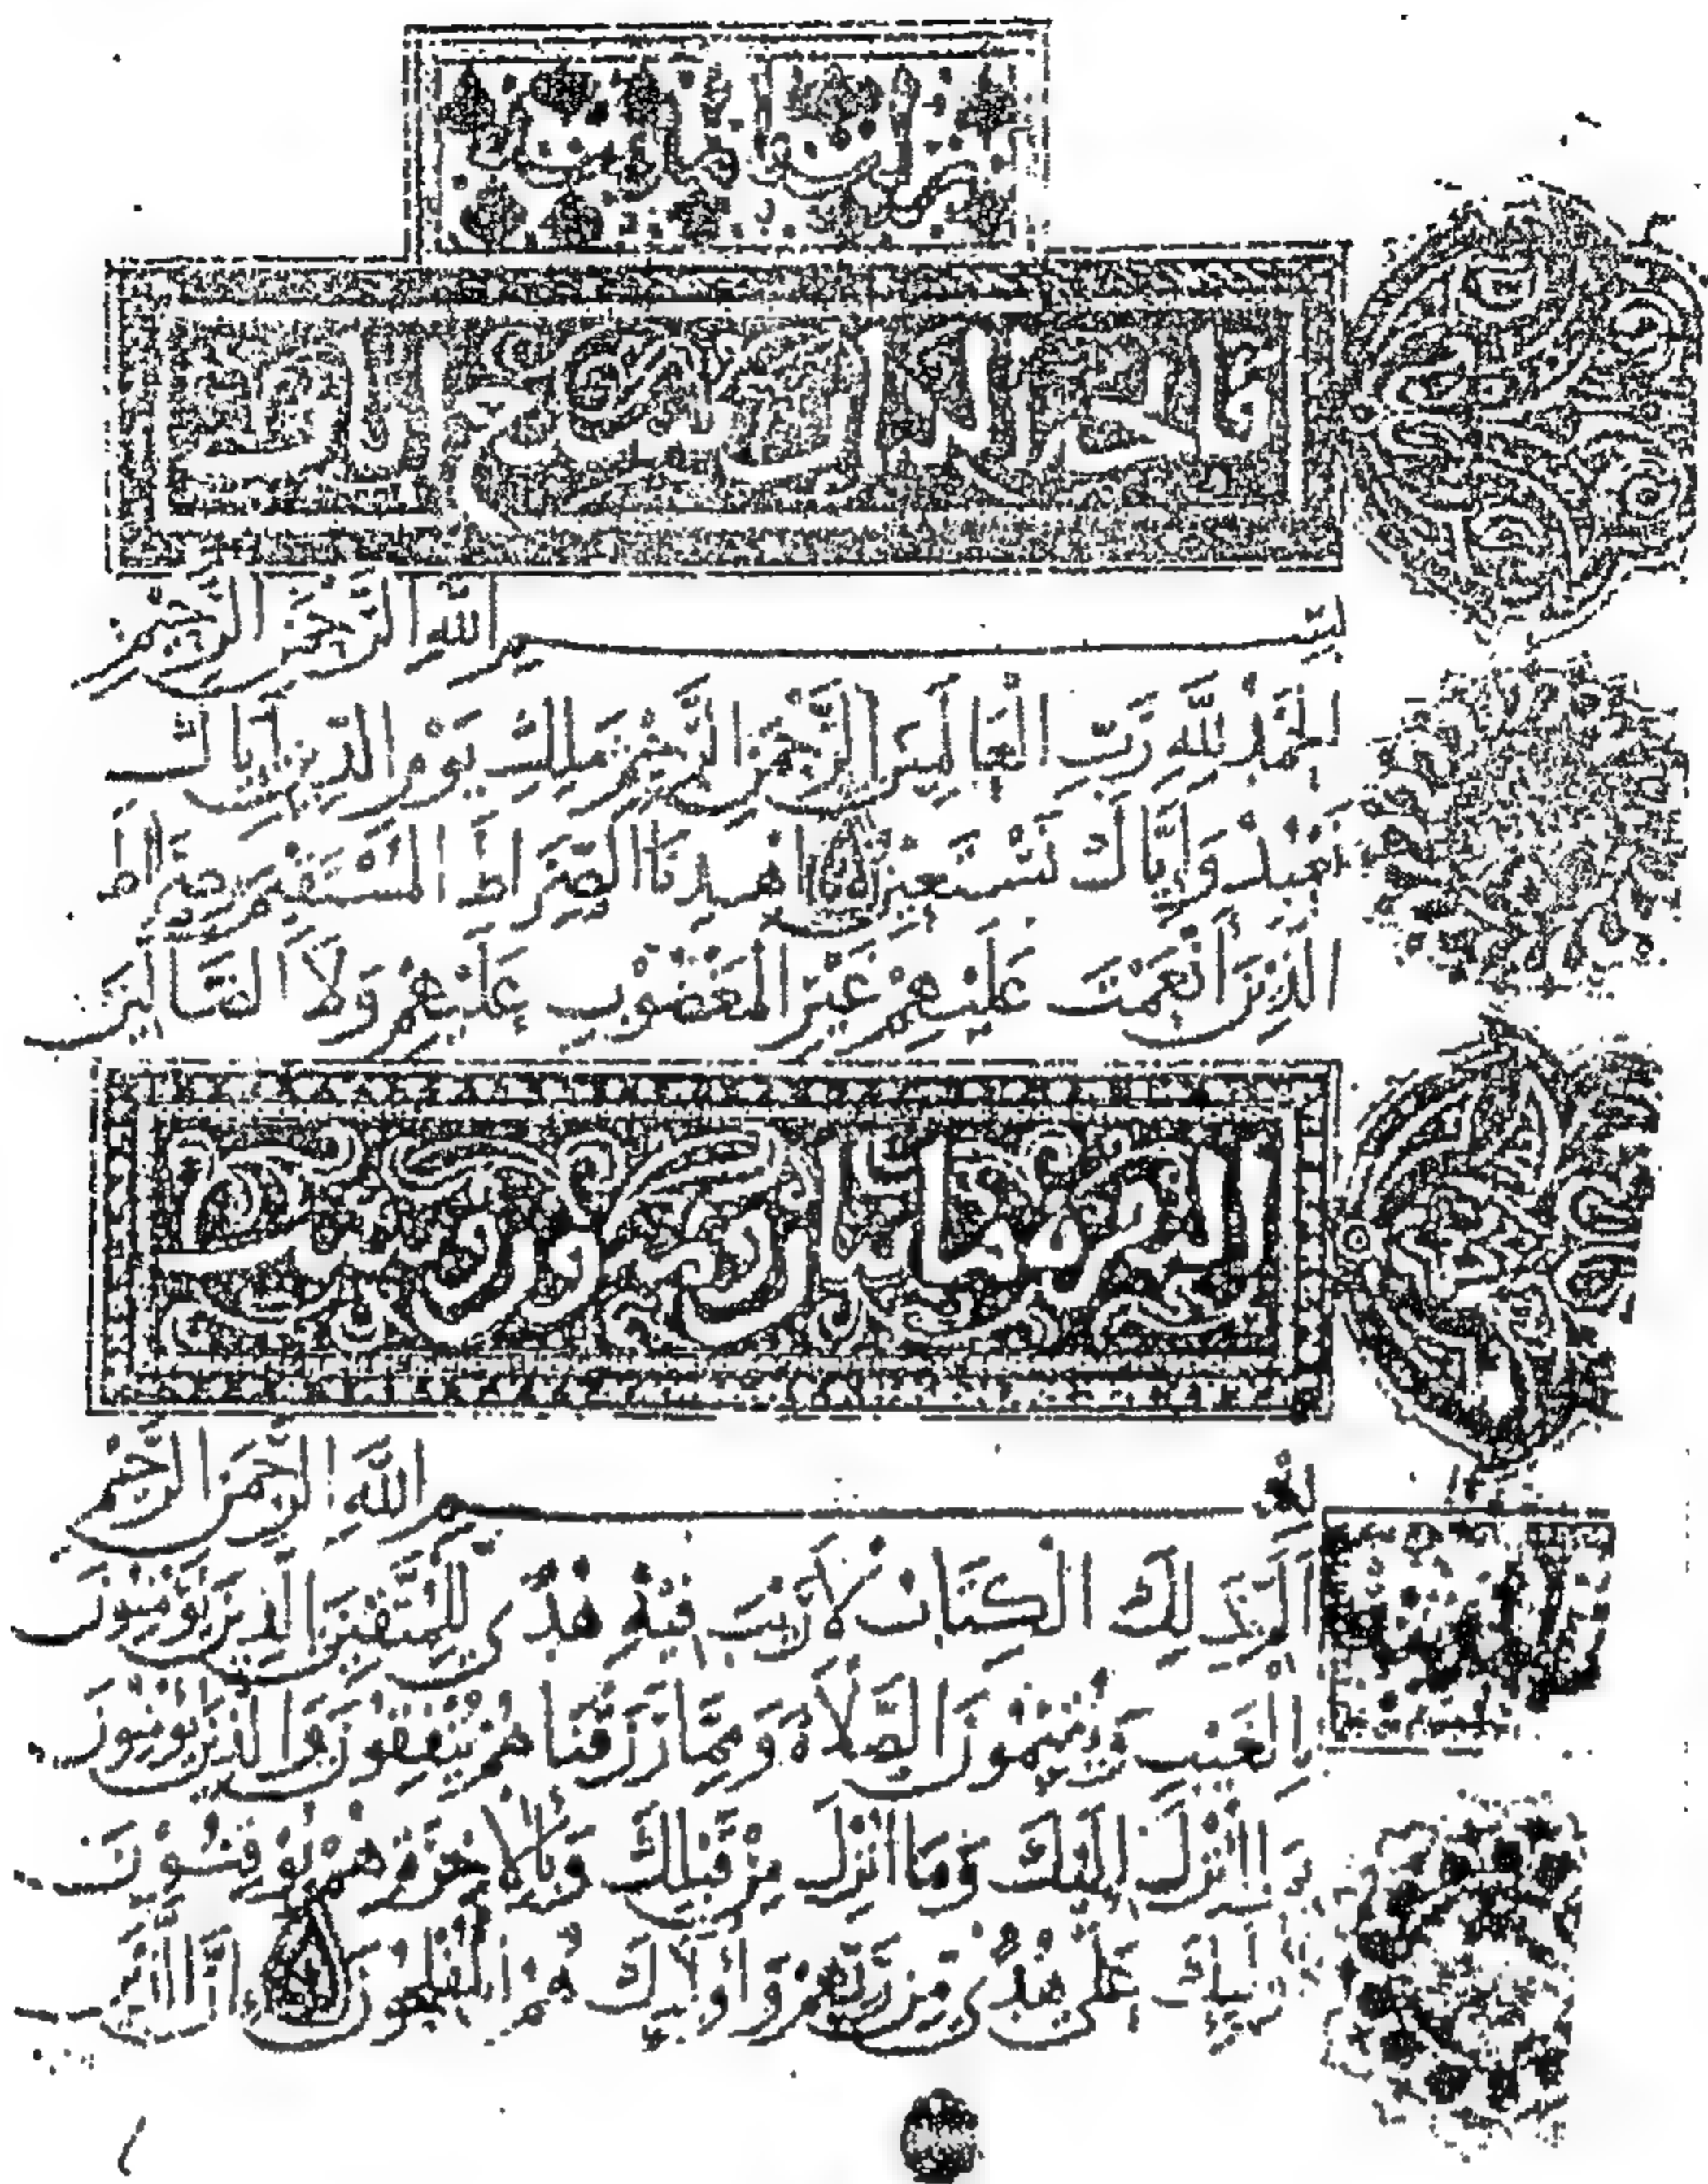 فاتحة الكتاب سبع ايات
بسم الله الرحمن الرحيم
الحمد لله رب العالمين الرحمن الرحيم ملك يوم الدين اياك
نعبد واياك نستعين اهدنا الصراط المستقيم صراط
الذين انعمت عليهم غير المغضوب عليهم ولا الضالين
البقرة مائتان وثمنون وست
بسم الله الرحمن الرحيم
الم ذلك الكتاب لا ريب فيه هدى للمتقين الذين يؤمنون
بالغيب ويقيمون الصلاة ومما رزقناهم ينفقون والذين يؤمنون
بما انزل اليك وما انزل من قبلك وبالاخرة هم يوقنون
اولئك على هدى من ربهم واولائك هم المفلحون ان الذين